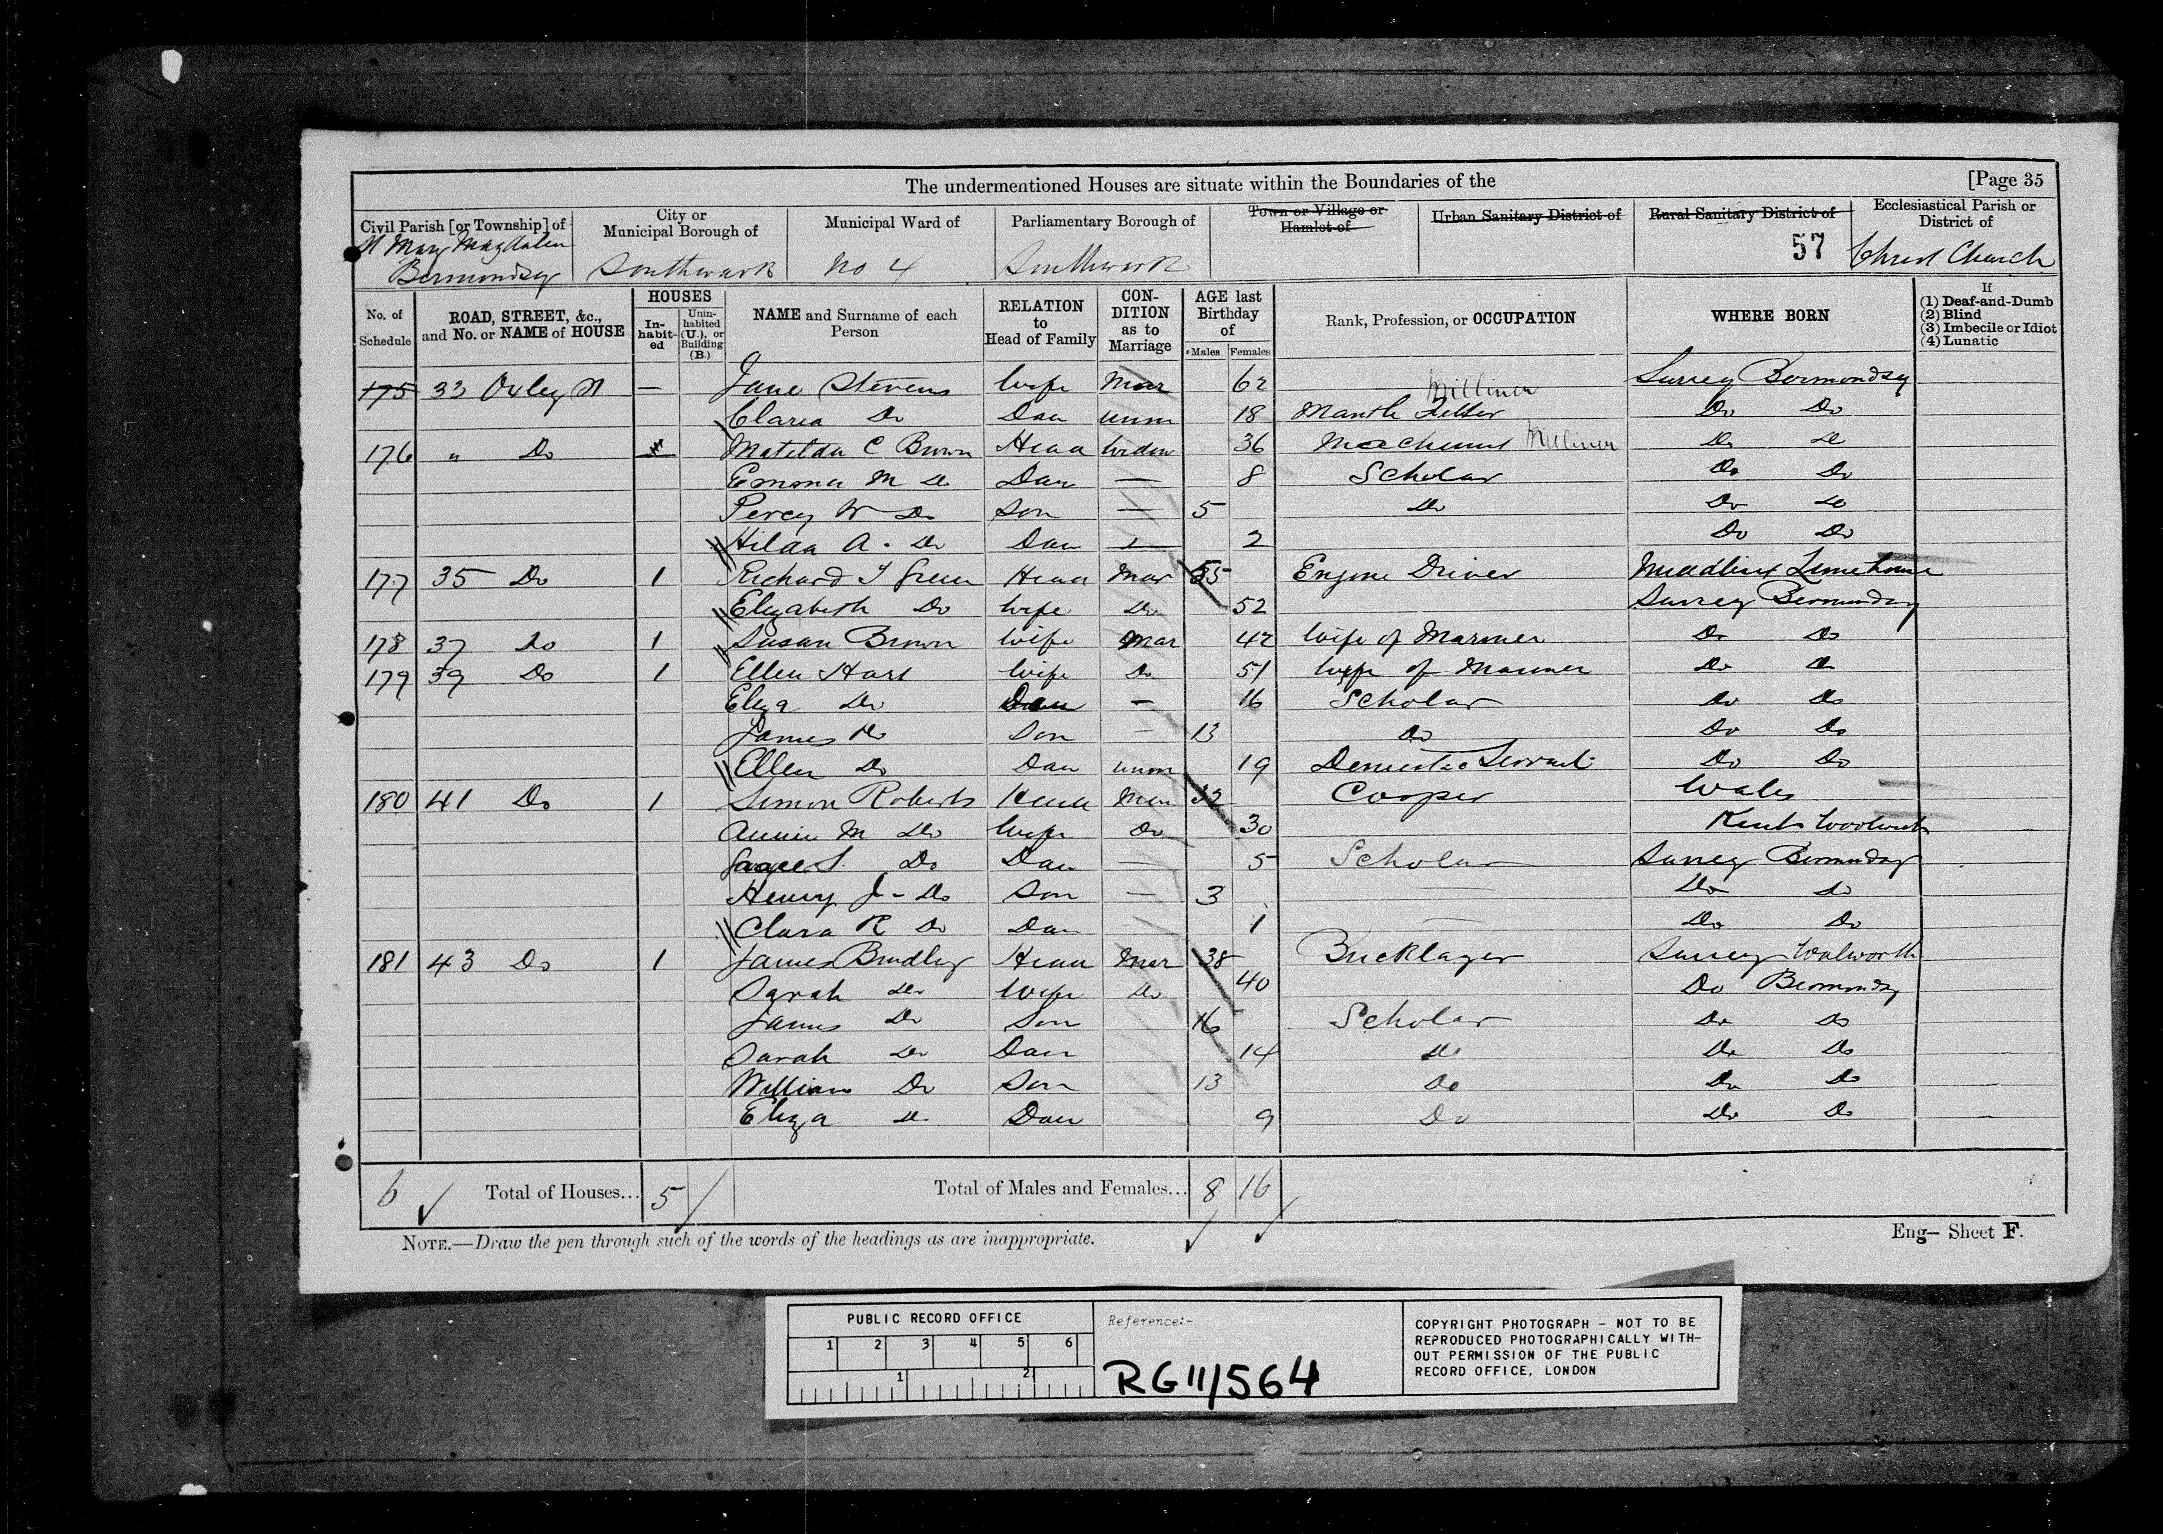 The undermentioned Houses are situate within the Boundaries of the [Page 35
Civil Parish [or Township] of St Mary Magdalen Bermondsey
City or Municipal Borough of Southwark
Municipal Ward of No 4
Parliamentary Borough of Southwark
Town or Village or Hamlet of
Urban Sanitary District of
Rural Sanitary District of
57
Ecclesiastical Parish or District of Christ Church
No. of Schedule
ROAD, STREET, &c., and No. or NAME of HOUSE
HOUSES
In-habit-ed
Unin-habited (U.), or Building (B.)
NAME and Surname of each Person
RELATION to Head of Family
CON-DITION as to Marriage
AGE last Birthday of
Males Females
Rank, Profession, or OCCUPATION
WHERE BORN
If
(1) Deaf-and-Dumb
(2) Blind
(3) Imbecile or Idiot
(4) Lunatic
175 33 Oxley St — Jane Stevens Wife Mar 62 Surrey Bermondsey
Clara Do Dau Unm 18 Mantle Milliner Do Do
176 " Do Matilda C Brown Head Widow 36 Milliner Do Do
Emma M Do Dau — 8 Scholar Do Do
Percy W Do Son — 5 Do Do Do
Hilda A. Do Dau — 2 Do Do
177 35 Do 1 Richard T Green Head Mar 55 Engine Driver Middlesx Limehouse
Elizabeth Do Wife Do 52 Surrey Bermondsey
178 37 Do 1 Susan Brown Wife Mar 42 Wife of Mariner Do Do
179 39 Do 1 Ellen Hart Wife Do 51 Wife of Mariner Do Do
Eliza Do Dau — 16 Scholar Do Do
James Do Son — 13 Do Do Do
Ellen Do Dau Unm 19 Domestic Servant Do Do
180 41 Do 1 Simon Roberts Head Mar 32 Cooper Wales
Annie M Do Wife Do 30 Kent Woolwich
Grace S. Do Dau — 5 Scholar Surrey Bermondsey
Henry J - Do Son — 3 — Do Do
Clara R Do Dau 1 — Do Do
181 43 Do 1 James Bradley Head Mar 38 Bricklayer Surrey Walworth
Sarah Do Wife Do 40 Do Bermondsey
James Do Son 16 Scholar Do Do
Sarah Do Dau 14 Do Do Do
William Do Son 13 Do Do Do
Eliza Do Dau 9 Do Do Do
6 Total of Houses... 5 Total of Males and Females... 8 16
NOTE.—Draw the pen through such of the words of the headings as are inappropriate.
Eng— Sheet F.
PUBLIC RECORD OFFICE
1 2 3 4 5 6
1 2
Reference:-
RG 11/564
COPYRIGHT PHOTOGRAPH - NOT TO BE
REPRODUCED PHOTOGRAPHICALLY WITH-
OUT PERMISSION OF THE PUBLIC
RECORD OFFICE, LONDON